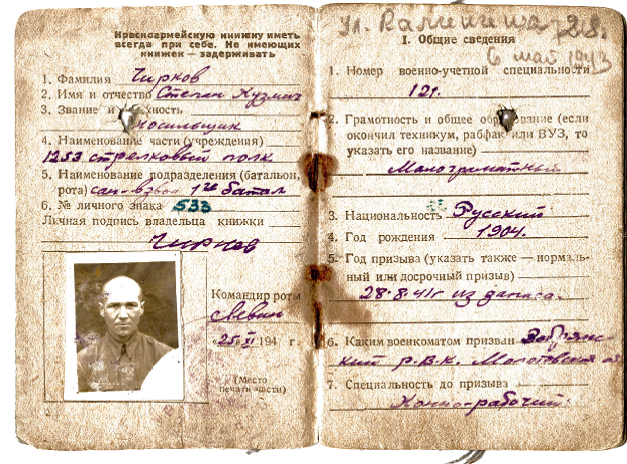 Красноармейскую книжку иметь
всегда при себе. Не имеющих
книжек — задерживать
1. Фамилия Чирков
2. Имя и отчество Степан Кузмич
3. Звание и должность
носильщик
4. Наименование части (учреждения)
1253 стрелковый полк
5. Наименование подразделения (батальон,
рота) сан-взвод 1го батал
6. № личного знака 533
Личная подпись владельца книжки
Чирков
Командир роты
«25» XI 194 г.
(Место
печати части)
Ул. Калинина 28.
6 май 1943
I. Общие сведения
1. Номер военно-учетной специальности
121.
2. Грамотность и общее образование (если
окончил техникум, рабфак или ВУЗ, то
указать его название)
Малограматный
3. Национальность Русский
4. Год рождения 1904.
5. Год призыва (указать также — нормаль-
ный или досрочный призыв)
28-8-41г из запаса.
6. Каким военкоматом призван Добрян-
ский р.В.К. Молотовской об
7. Специальность до призыва
Конно-рабочий